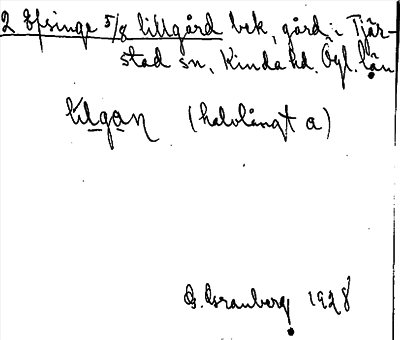 2 Efsinge 5/8 lillgård bek, gård i Tjär-
stad sn, Kinda hd. Ögl. län
lilgan (halvlångt a)
G. Granberg 1928